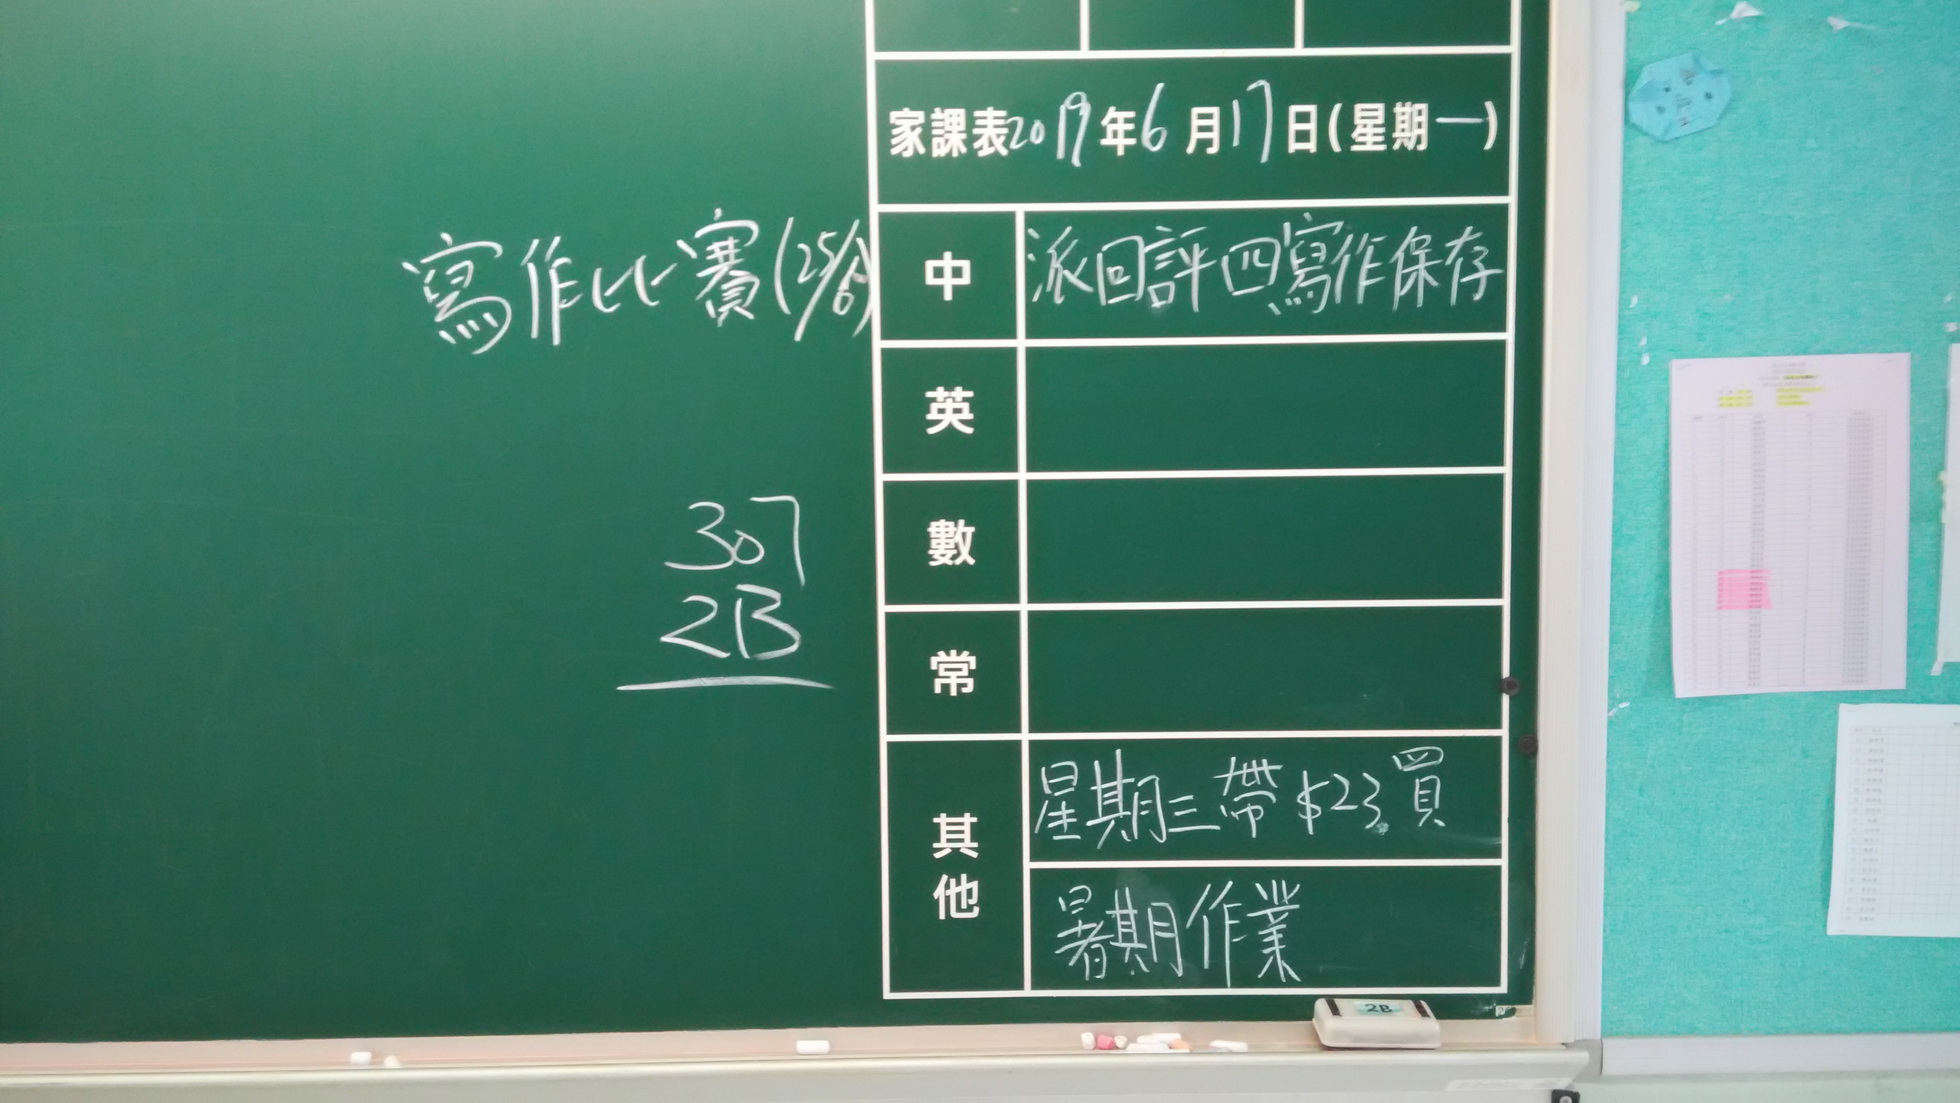 家課表2019年6月17日(星期一)
寫作比賽(25/6)
中 派回評四寫作保存
英
307
數
2B
常
其他 星期三帶$23買
暑期作業
2B